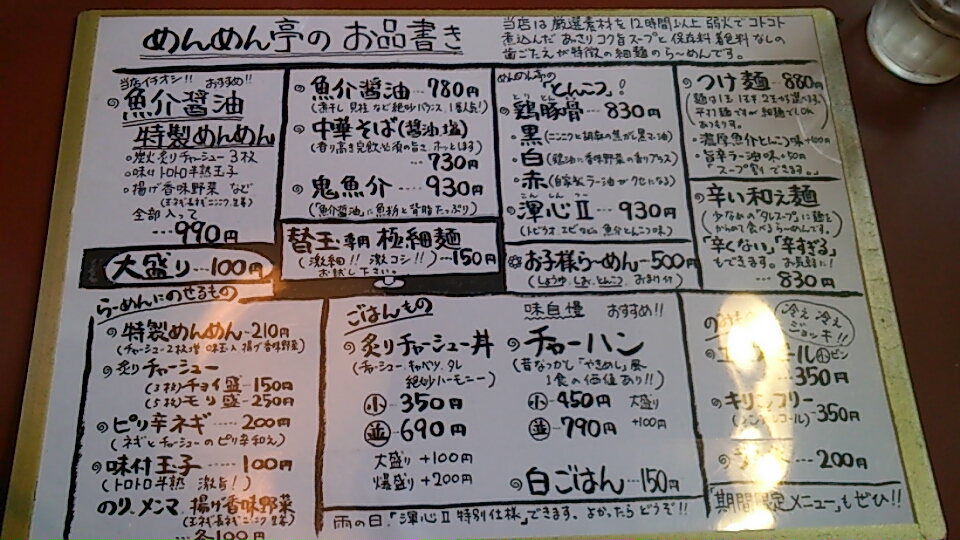 めんめん亭のお品書き
当店は厳選素材を12時間以上弱火でコトコト
煮込んだあっさりコク旨スープと保存料着色料なしの
歯ごたえが特徴の細麺のら〜めんです。
当店イチオシ!! おすすめ!!
魚介醤油
特製めんめん
・炭火炙りチャーシュー3枚
・味付トロトロ半熟玉子
・揚げ香味野菜 など
全部入って
…990円
大盛り…100円
魚介醤油…780円
中華そば(醤油,塩)
…730円
鬼魚介…930円
(「魚介醤油」に魚粉と背脂たっぷり)
替玉専門 極細麺
(激細!! 激コシ!!)…150円
お試し下さい。
めんめん亭の「とんこつ」!
とりとんこつ
鶏豚骨…830円
・黒(ニンニクと胡麻の焦がし黒マー油)
・白(鶏油に香味野菜の香りプラス)
・赤(自家製ラー油がクセになる)
こんしんつー
渾心Ⅱ…930円
お子様ら〜めん…500円
(しょうゆ、しお、とんこつ、おまけ付)
つけ麺…880円
・濃厚魚介とんこつ味+100円
・旨辛ラー油味+50円
「スープ割」できます。
辛い和え麺
少なめの「タレスープ」に麺を
からめて食べるら〜めんです。
「辛くない」「辛すぎる」
もできます。お気軽に!
…830円
ら〜めんにのせるもの
特製めんめん…210円
(チャーシュー2枚増 味玉入 揚げ香味野菜)
炙りチャーシュー
(3枚)チョイ盛…150円
(5枚)モリ盛…250円
ピリ辛ネギ…200円
(ネギとチャーシューのピリ辛和え)
味付玉子……100円
(トロトロ半熟 激旨!)
のり、メンマ、揚げ香味野菜
…各100円
ごはんもの
炙りチャーシュー丼
(チャーシュー、キャベツ、タレ
絶妙ハーモニー)
小…350円
並…690円
大盛り+100円
爆盛り+200円
味自慢 おすすめ!!
チャーハン
(昔なつかし「やきめし」風
1食の価値あり!!)
小…450円 大盛り
並…790円 +100円
白ごはん…150円
雨の日、「渾心Ⅱ特別仕様」できます。よかったらどうぞ!!
冷え冷え
ジョッキ!!
小ビン
…350円
キリンフリー
(ノンアルコール)…350円
…200円
「期間限定メニュー」もぜひ!!